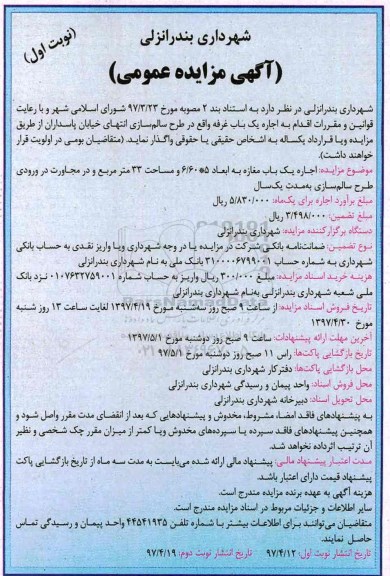 (نوبت اول)
شهرداری بندرانزلی
(آگهی مزایده عمومی)
شهرداری بندرانزلی در نظر دارد به استناد بند ۲ مصوبه مورخ ۹۷/۳/۲۳ شورای اسلامی شهر و با رعایت
قوانین و مقررات اقدام به اجاره یک باب غرفه واقع در طرح سالم‌سازی انتهای خیابان پاسداران از طریق
مزایده وبا قرارداد یکساله به اشخاص حقیقی یا حقوقی واگذار نماید. (متقاضیان بومی در اولویت قرار
خواهند داشت).
موضوع مزایده: اجاره یک باب مغازه به ابعاد ۵*۶/۶۰ و مساحت ۳۳ متر مربع و در مجاورت در ورودی
طرح سالم‌سازی به‌مدت یک‌سال
مبلغ برآورد اجاره برای یک‌ماه: ۵/۸۳۰/۰۰۰ ریال
مبلغ تضمین: ۳/۴۹۸/۰۰۰ ریال
دستگاه برگزارکننده مزایده: شهرداری بندرانزلی
نوع تضمین: ضمانت‌نامه بانکی شرکت در مزایده یا در وجه شهرداری ویا واریز نقدی به حساب بانکی
شهرداری به شماره حساب ۳۱۰۰۰۰۶۷۹۹۰۰۱ بانک ملی به نام شهرداری بندرانزلی
هزینه خرید اسناد مزایده: مبلغ ۳۰۰/۰۰۰ ریال واریز به حساب شماره ۰۱۰۷۶۳۲۷۵۹۰۰۱ نزد بانک
ملی شعبه شهرداری بندرانزلی به‌نام شهرداری بندرانزلی
تاریخ فروش اسناد مزایده: از ساعت ۹ صبح روز سه‌شنبه مورخ ۱۳۹۷/۴/۱۹ لغایت ساعت ۱۳ روز شنبه
مورخ ۱۳۹۷/۴/۳۰
آخرین مهلت ارائه پیشنهادات: ساعت ۹ صبح روز دوشنبه مورخ ۱۳۹۷/۵/۱
تاریخ بازگشایی پاکت‌ها: راس ۱۱ صبح روز دوشنبه مورخ ۹۷/۵/۱
محل بازگشایی پاکت‌ها: دفترکار شهرداری بندرانزلی
محل فروش اسناد: واحد پیمان و رسیدگی شهرداری بندرانزلی
محل تحویل اسناد: دبیرخانه شهرداری بندرانزلی
به پیشنهادهای فاقد امضاء، مشروط، مخدوش و پیشنهادهایی که بعد از انقضای مدت مقرر واصل شود و
همچنین پیشنهادهای فاقد سپرده یا سپرده‌های مخدوش ویا کمتر از میزان مقرر چک شخصی و نظیر
آن ترتیب اثرداده نخواهد شد.
مدت اعتبار پیشنهاد مالی: پیشنهاد مالی ارائه شده می‌بایست به مدت سه ماه از تاریخ بازگشایی پاکت
پیشنهاد قیمت دارای اعتبار باشد.
هزینه آگهی به عهده برنده مزایده مندرج است.
سایر اطلاعات و جزئیات مربوط در اسناد مزایده مندرج است.
متقاضیان می‌توانند برای اطلاعات بیشتر با شماره تلفن ۴۴۵۴۱۹۳۵ واحد پیمان و رسیدگی تماس
حاصل نمایند.
تاریخ انتشار نوبت اول: ۹۷/۴/۱۲ تاریخ انتشار نوبت دوم: ۹۷/۴/۱۹